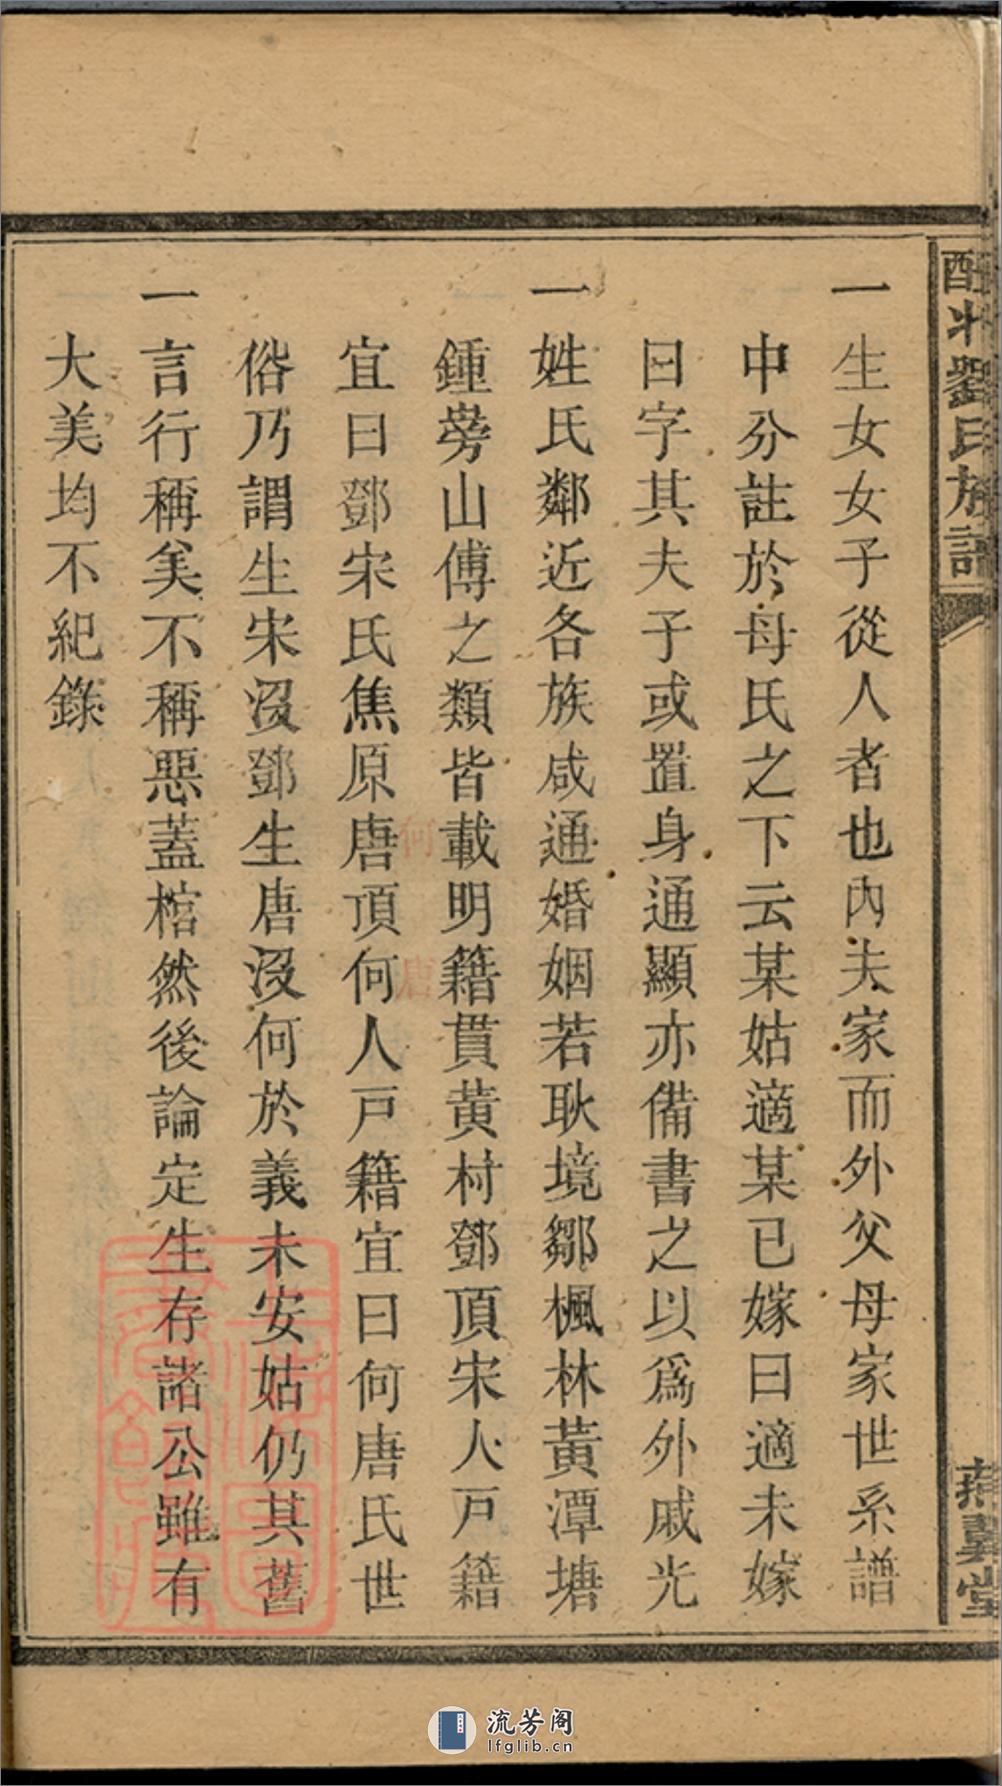 劉氏族譜
一生女女子從人者也內夫家而外父母家世系譜
中分註於母氏之下云某姑適某已嫁曰適未嫁
曰字其夫子或置身通顯亦備書之以爲外戚光
一姓氏鄰近各族咸通婚姻若耿境鄒楓林黃潭塘
鍾蒡山傅之類皆載明籍貫黄村鄧頂宋人戸籍
宜曰鄧宋氏焦原唐頂何人戸籍宜曰何唐氏世
俗乃謂生宋沒鄧生唐沒何於義未安姑仍其舊
一言行稱美不稱惡蓋棺然後論定生存諸公雖有
大美均不紀錄
燕翼堂
何
唐
流芳阁
lfglib.cn